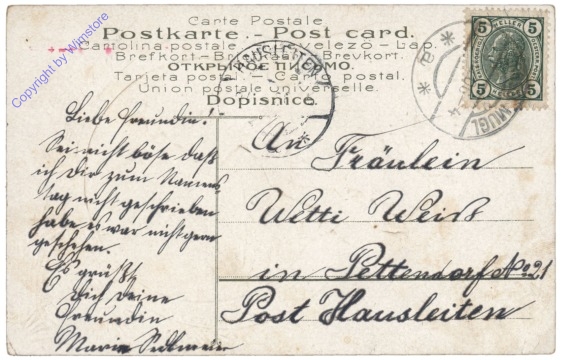 Carte Postale
Postkarte. - Post card.
Cartolina postale - Levelező - Lap.
Brefkort - Briefkaart - Brevkort.
ОТКРЫТОЕ ПИСЬМО.
Tarjeta postal. - Carto postal.
Union postale universelle.
Dopisnice.
HAUSLEITEN
5 HELLER 5
5 5
MUGL
* a *
Copyright by Wimstore
Liebe Freundin!
Sei nicht böse daß
ich Dir zum Namens
tag nicht geschrieben
habe es war nicht gern
geschehen.
Es grüßt
Dich Deine
Freundin
Marie
An
Fräulein
Wetti Weiß
in Pettendorf No 21
Post Hausleiten